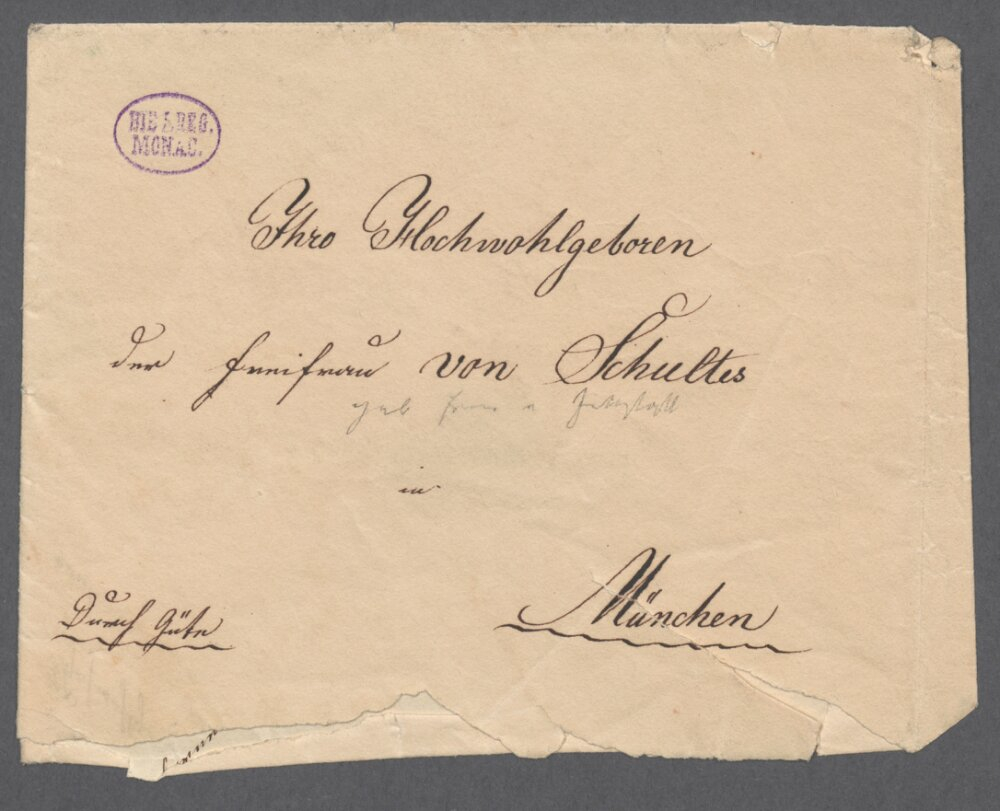 BIB. REG.
MONAC.
Ihro Hochwohlgeboren
der Freifrau von Schultes
geb
in
Durch Güte
München